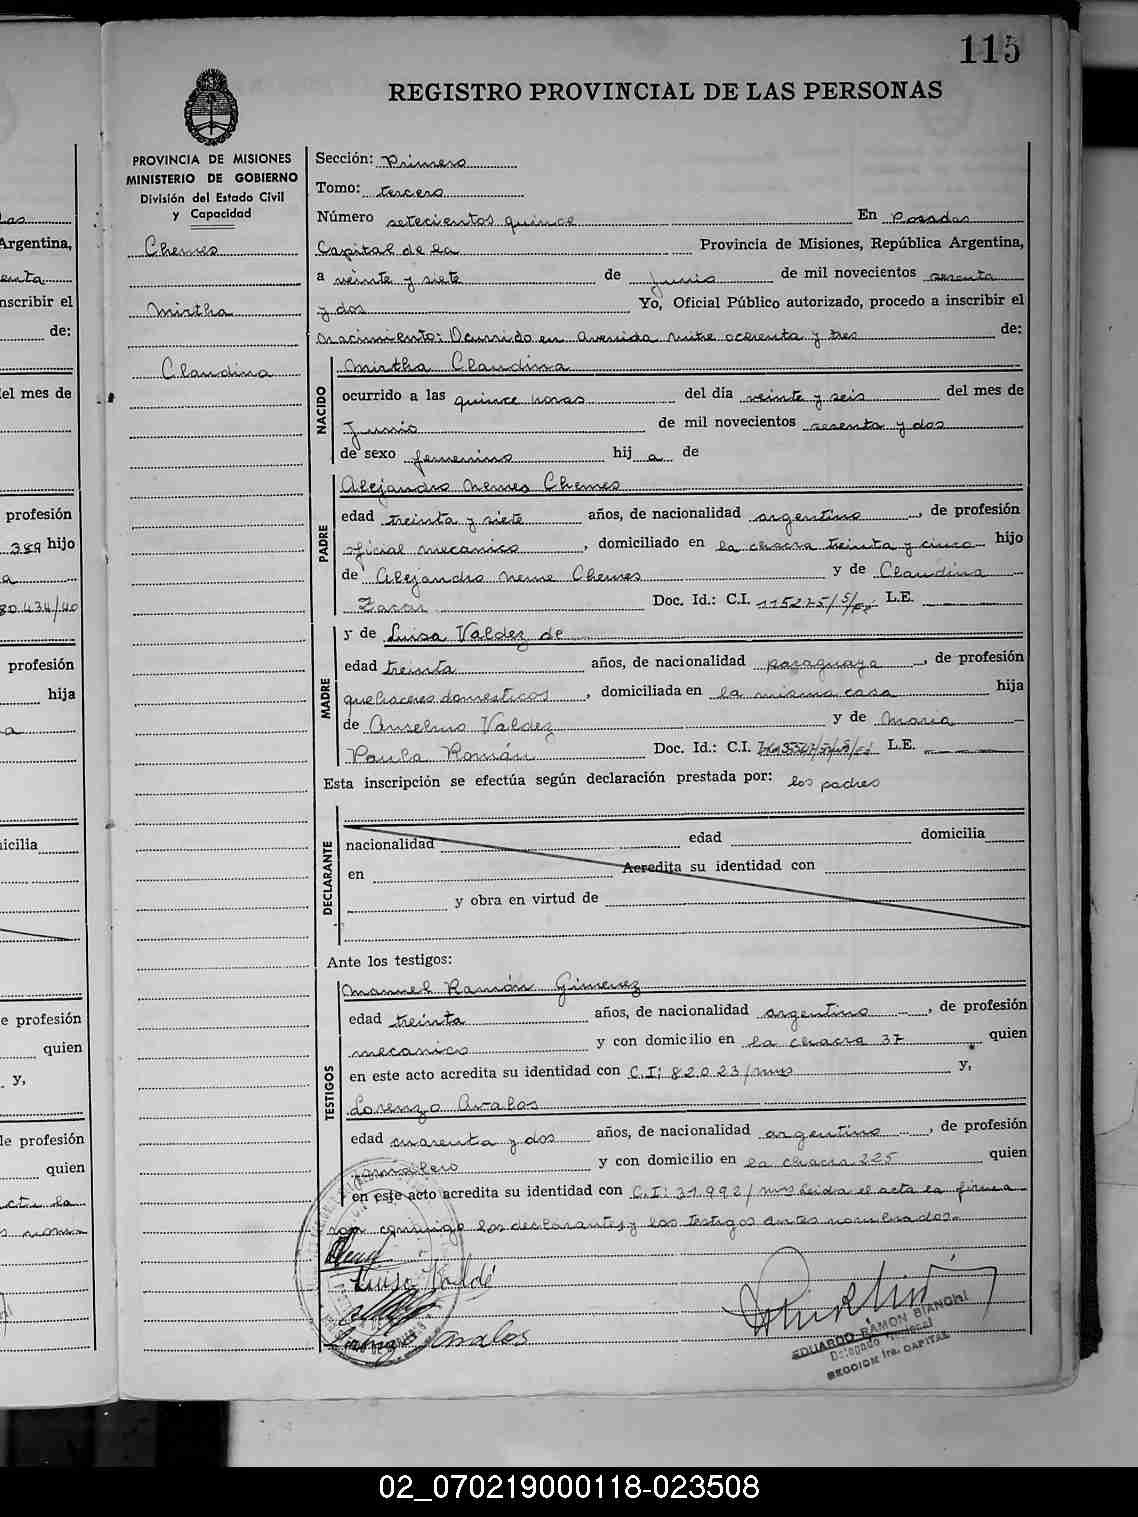 115
REGISTRO PROVINCIAL DE LAS PERSONAS
PROVINCIA DE MISIONES
MINISTERIO DE GOBIERNO
División del Estado Civil
y Capacidad
Chemes
Mirtha
Claudina
Sección: Primera
Tomo: tercero
Número setecientos quince En Posadas
Capital de la Provincia de Misiones, República Argentina,
a veinte y siete de Junio de mil novecientos sesenta
y dos Yo, Oficial Público autorizado, procedo a inscribir el
nacimiento: Ocurrido en avenida mitre ochenta y tres de:
NACIDO
Mirtha Claudina
ocurrido a las quince horas del día veinte y seis del mes de
Junio de mil novecientos sesenta y dos
de sexo femenino hij a de
PADRE
Alejandro Nemes Chemes
edad treinta y siete años, de nacionalidad argentino, de profesión
oficial mecanico, domiciliado en la chacra treinta y cinco hijo
de Alejandro Neme Chemes y de Claudina
Doc. Id.: C.I. L.E.
MADRE
y de Luisa Valdez de
edad treinta años, de nacionalidad paraguaya, de profesión
quehaceres domesticos, domiciliada en la misma casa hija
de Anselmo Valdez y de Maria
Paula Román Doc. Id.: C.I. L.E.
Esta inscripción se efectúa según declaración prestada por: los padres
DECLARANTE
nacionalidad edad domicilia
en Acredita su identidad con
y obra en virtud de
Ante los testigos:
TESTIGOS
Manuel Ramón Gimenez
edad treinta años, de nacionalidad argentino, de profesión
mecanico y con domicilio en la chacra 37 quien
en este acto acredita su identidad con C.I: 82023/mns y,
Lorenzo Avalos
edad cuarenta y dos años, de nacionalidad argentino, de profesión
y con domicilio en la chacra 225 quien
en este acto acredita su identidad con C.I: 31.992/mns leida el acta la firma
con conmigo los declarantes y los testigos antes nombrados.
Luisa Valdé
Avalos
EDUARDO RAMON BIANCHI
Delegado Seccional
SECCION 1ra. CAPITAL
las
Argentina,
enta
nscribir el
de:
del mes de
profesión
389 hijo
a
80.434/40
profesión
hija
a
icilia
e profesión
quien
y,
le profesión
quien
02_070219000118-023508